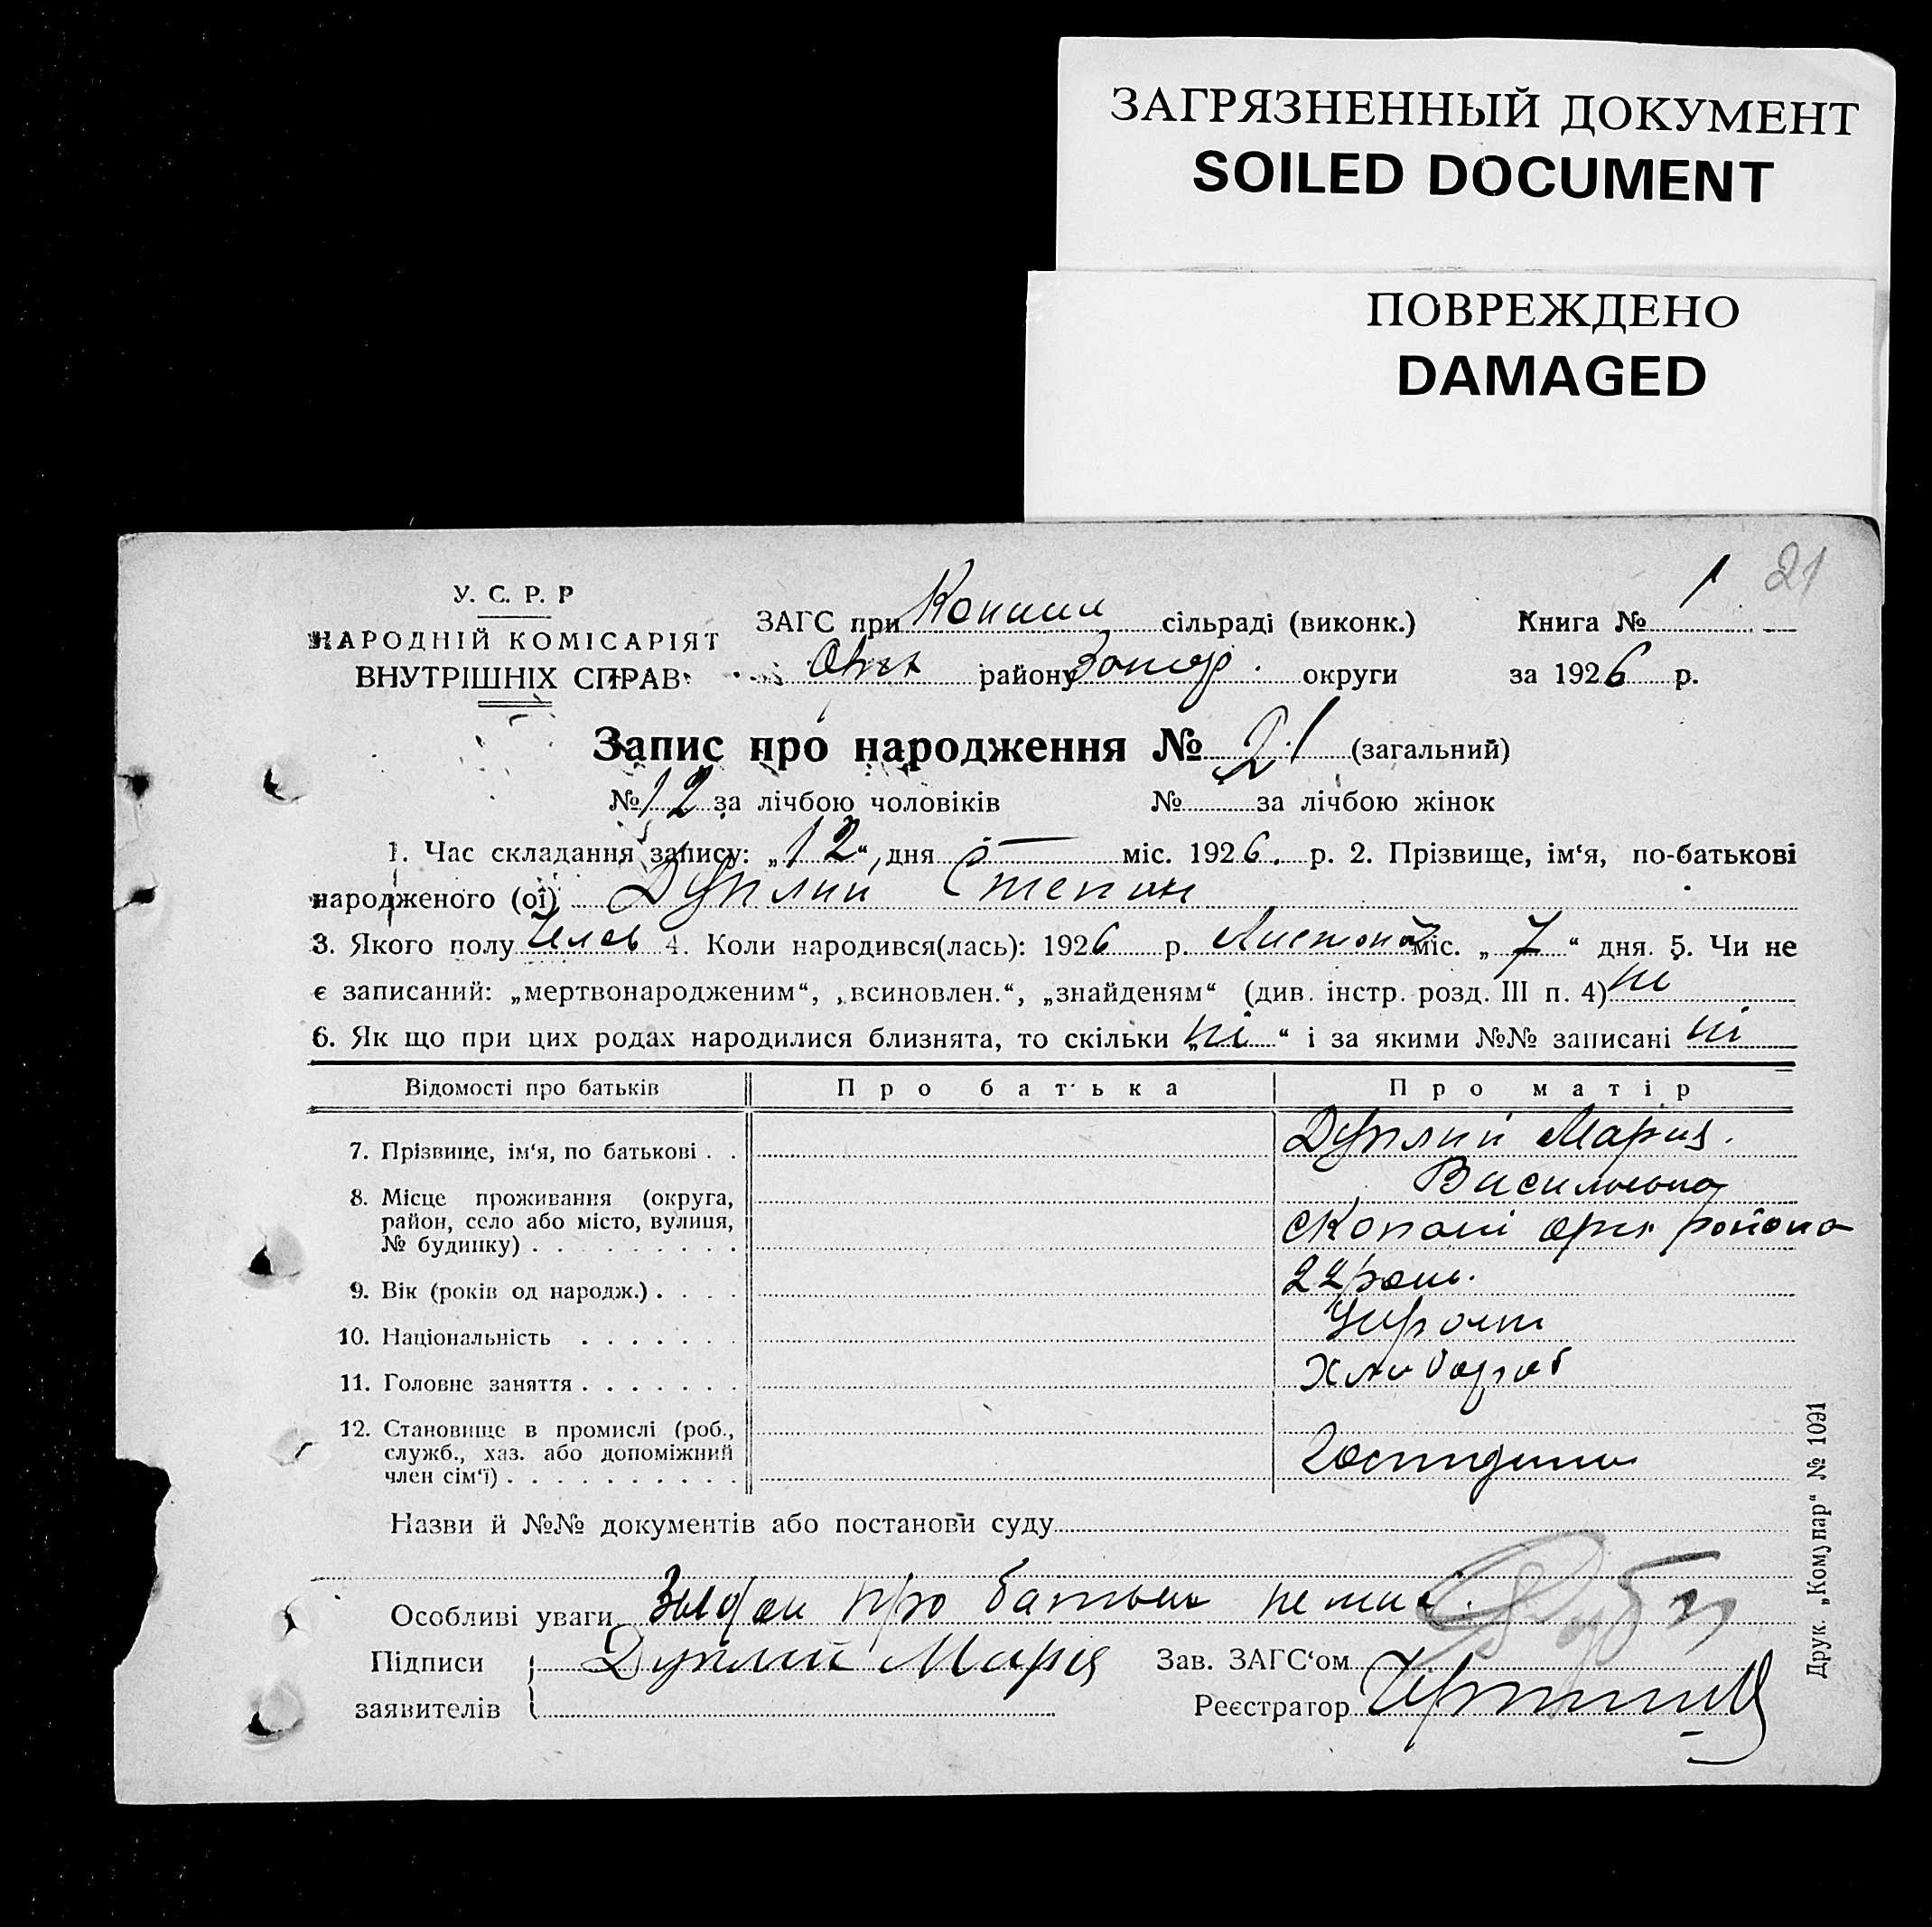 ЗАГРЯЗНЕННЫЙ ДОКУМЕНТ
SOILED DOCUMENT
ПОВРЕЖДЕНО
DAMAGED
21
У. С. Р. Р
НАРОДНІЙ КОМІСАРІЯТ
ВНУТРІШНІХ СПРАВ
ЗАГС при Копани сільраді (виконк.) Книга № 1
Оріх району Запор. округи за 1926 р.
Запис про народження № 21 (загальний)
№ 12 за лічбою чоловіків № за лічбою жінок
1. Час складання запису: „12“ дня — міс. 1926. р. 2. Прізвище, ім‘я, по-батькові
народженого (ої) Дуплий Степан
3. Якого полу 4. Коли народився(лась): 1926 р. Листопад міс. „7“ дня. 5. Чи не
є записаний: „мертвонародженим“, „всиновлен.“, „знайденям“ (див. інстр. розд. III п. 4) ні
6. Як що при цих родах народилися близнята, то скільки „ні“ і за якими №№ записані ні
Відомості про батьків Про батька Про матір
7. Прізвище, ім‘я, по батькові . . Дуплий Мария.
Васильовна
8. Місце проживання (округа,
район, село або місто, вулиця,
№ будинку) . . . . . . . . . с Копані Оріх района
9. Вік (років од народж.) . . . . 22 рок.
10. Національність . . . . . . . Украин
11. Головне заняття . . . . . . . Хлибороб
12. Становище в промислі (роб.,
служб., хаз. або допоміжний
член сім‘ї) . . . . . . . . . .
Назви й №№ документів або постанови суду
Особливі уваги про батька немає.
Підписи Дуплий Мария Зав. ЗАГС‘ом
заявителів Реєстратор
Друк. „Комунар“ № 1091